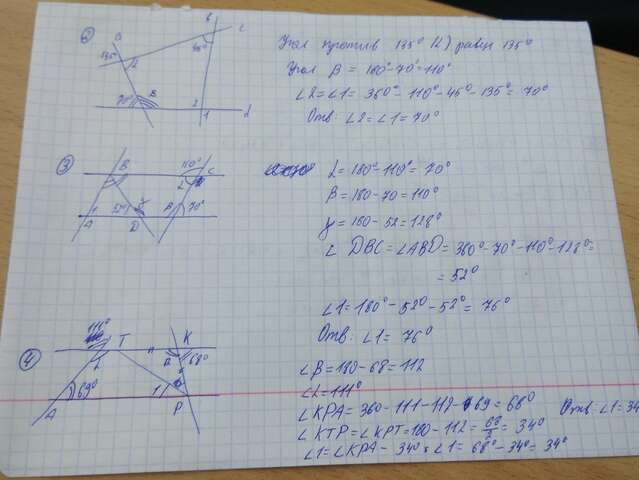 2
a
b
c
135°
α
45°
70°
β
2
1
d
Угол против 135° (α) равен 135°
Угол β = 180° - 70° = 110°
∠2 = ∠1 = 360° - 110° - 45° - 135° = 70°
Отв: ∠2 = ∠1 = 70°
3
B
110°
C
α
1
A
52°
γ
D
β
70°
α = 180° - 110° = 70°
β = 180 - 70 = 110°
γ = 180 - 52 = 128°
∠ DBC = ∠ABD = 360° - 70° - 110° - 128° =
= 52°
∠1 = 180° - 52° - 52° = 76°
Отв: ∠1 = 76°
4
111°
T
n
K
α
β
68°
A
69°
1
P
∠β = 180 - 68 = 112
∠α = 111°
∠KPA = 360 - 111 - 112 - 69 = 68°
∠KTP = ∠KPT = 180 - 112 = 68/2 = 34°
Отв: ∠1 = 34
∠1 = ∠KPA - 34° = ∠1 = 68° - 34° = 34°